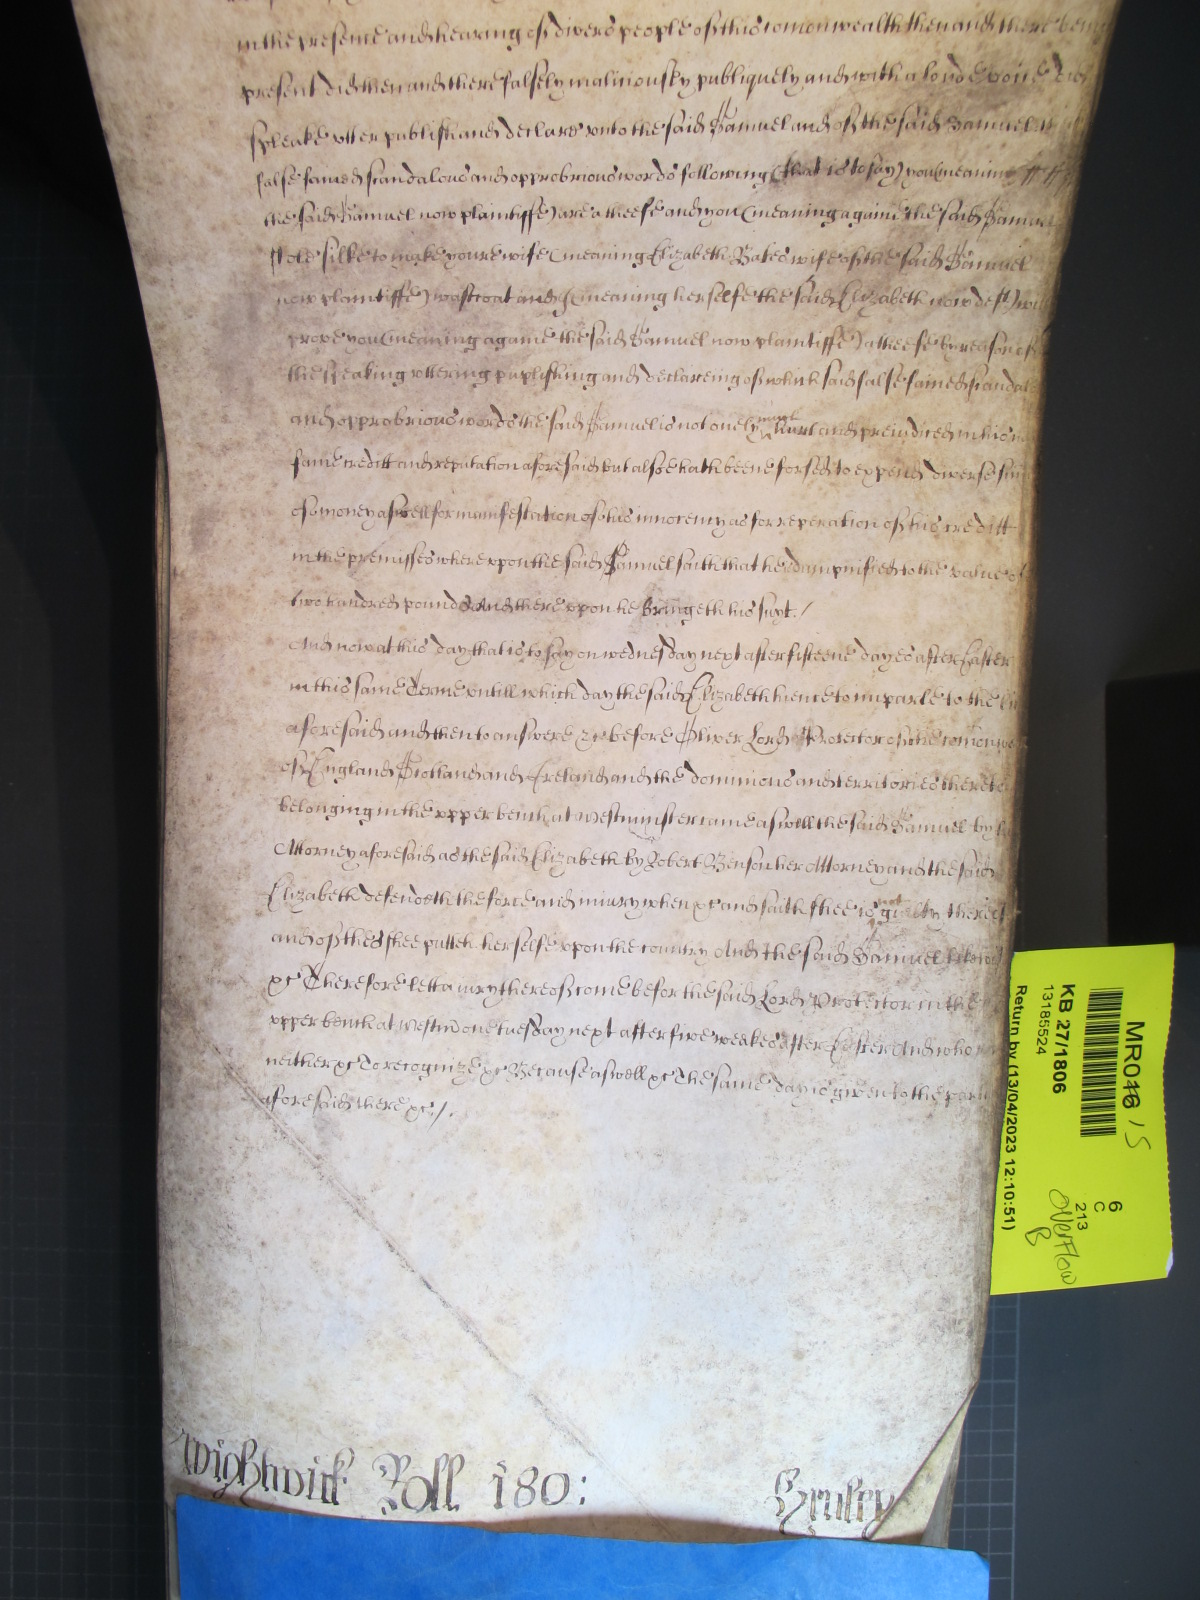 in the presence and hearing of divers people of this comonwealth then and there being
present did then and there falsely maliciously publiquely and with a loude voice
speake utter publish and declare unto the said Samuel and of the said Samuel
false fained scandalous and opprobrious words following (that is to say) you (meaninge
the said Samuel now plaintiffe) are a theefe and you (meaning againe the said Samuel
stole silke to make youre wife (meaning Elizabeth Bates wife of the said Samuel
now plaintiffe) wastcoat and I (meaning herselfe the said Elizabeth now deft)
prove you (meaning againe the said Samuel now plaintiffe) a theefe by reason of
the speaking uttering publishing and declareing of which said false fained
and opprobrious words the said Samuel is not onely much hurt and preiudiced in his
fame creditt and reputation aforesaid but alsoe hath beene forsed to expend diverse
of money aswell for manifestation of his innocency as for reperation of his creditt
in the premisses whereupon the said Samuel saith that he is dampnified to the value of
two hundred pounds And thereupon he bringeth his suyt./
And now at this day that is to say on wednesday next after fifteene dayes after Easter
in this same Terme untill which day the said Elizabeth hence to imparle to the
aforesaid and then to answere &c before Oliver Lord Protector of the
of England Scotland and Ireland and the dominions and territories thereto
belonging in the upper bench at Westminster came aswell the said Samuel by
Attorney aforesaid as the said Elizabeth by Robert Benson her Attorney and the said
Elizabeth defendeth the force and iniury when &c and saith shee is not guilty thereof
and of this shee putteth herselfe upon the country And the said Samuel likewise
&c Therefore lett a iury thereof come before the said Lord Protector in the
upper bench at Westm on tuesday next after five weekes after Easter And who
neither &c To recognize &c Because aswell &c The same day is given to the
aforesaid there &c./.
Wightwick Roll 180:
Henley
MR046 15
KB 27/1806
13185524
Return by (13/04/2023 12:10:51)
6
C
213
OVERFLOW
B